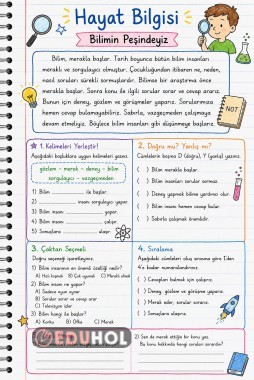 Hayat Bilgisi
Bilimin Peşindeyiz
Bilim, merakla başlar. Tarih boyunca bütün bilim insanları
meraklı ve sorgulayıcı olmuştur. Çocukluğundan itibaren ne, neden,
nasıl soruları sürekli sormuşlardır. Bilimse bir araştırma önce
merakla başlar. Sonra konu ile ilgili sorular sorar ve cevap ararız.
Bunun için deney, gözlem ve görüşmeler yaparız. Sorularımıza
hemen cevap bulamayabiliriz. Sabırla, vazgeçmeden çalışmaya
devam etmeliyiz. Böylece bilim insanları gibi düşünmeye başlarız.
NOT
1. Kelimeleri Yerleştir!
Aşağıdaki boşluklara uygun kelimeleri yazınız.
gözlem - merak - deney - bilim
sorgulayıcı - vazgeçmeden
1) Bilim ile başlar.
2) insanı sorgulayıcı yapar.
3) Bilim insanı yapar.
4) Bilim insanı çalışır.
5) Sorulara alışır.
2. Doğru mu? Yanlış mı?
Cümlelerin başına D (doğru), Y (yanlış) yazınız.
( ) Bilim merakla başlar.
( ) Bilim insanları sorular sormaz.
( ) Deney yapmak bilime yardımcı olur.
( ) Bilim insanı hemen cevap bulur.
( ) Sabırla çalışmak önemlidir.
3. Çoktan Seçmeli
Doğru seçeneği işaretleyiniz.
1) Bilim insanının en önemli özelliği nedir?
A) Hızlı koşmak B) Çok uyumak C) Meraklı olmak
2) Bilim insanı ne yapar?
A) Sadece oyun oynar
B) Sorular sorar ve cevap arar
C) Televizyon izler
3) Bilim hangi ile başlar?
A) Korku B) Öfke C) Merak
4. Sıralama
Aşağıdaki cümleleri oluş sırasına göre 1'den
4'e kadar numaralandırınız.
( ) Cevapları bulmak için çalışırız.
( ) Deney, gözlem ve görüşme yaparız.
( ) Merak eder, sorular sorarız.
( ) Sonuçlara ulaşırız.
EDUHOL
2) Sen de merak ettiğin bir konu yaz.
Bu konu hakkında hangi soruları sorardın?